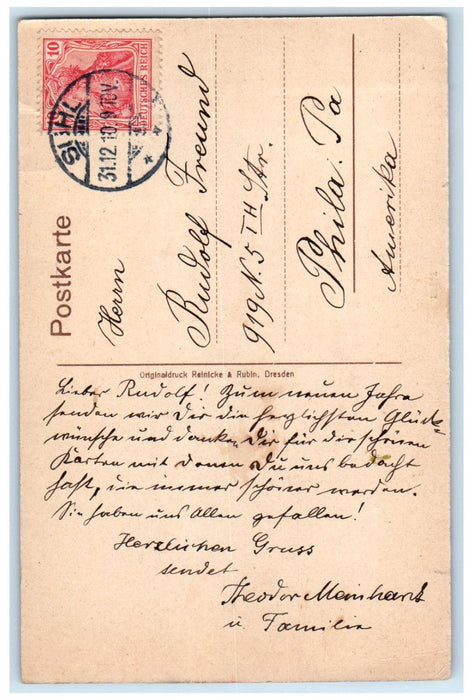 10
DEUTSCHES REICH
SUHL
31.12.10. 9-10V.
Postkarte
Herrn
Rudolf Freund
919 N. 5 TH Str.
Phila. Pa
Amerika
Originaldruck Reinicke & Rubin, Dresden
Lieber Rudolf! Zum neuen Jahre
senden wir Dir die herzlichsten Glück-
wünsche und danken Dir für die schönen
Karten mit denen Du uns bedacht
hast, die immer schöner werden.
Sie haben uns Allen gefallen!
Herzlichen Gruss
sendet
Theodor Meinhardt
u. Familie